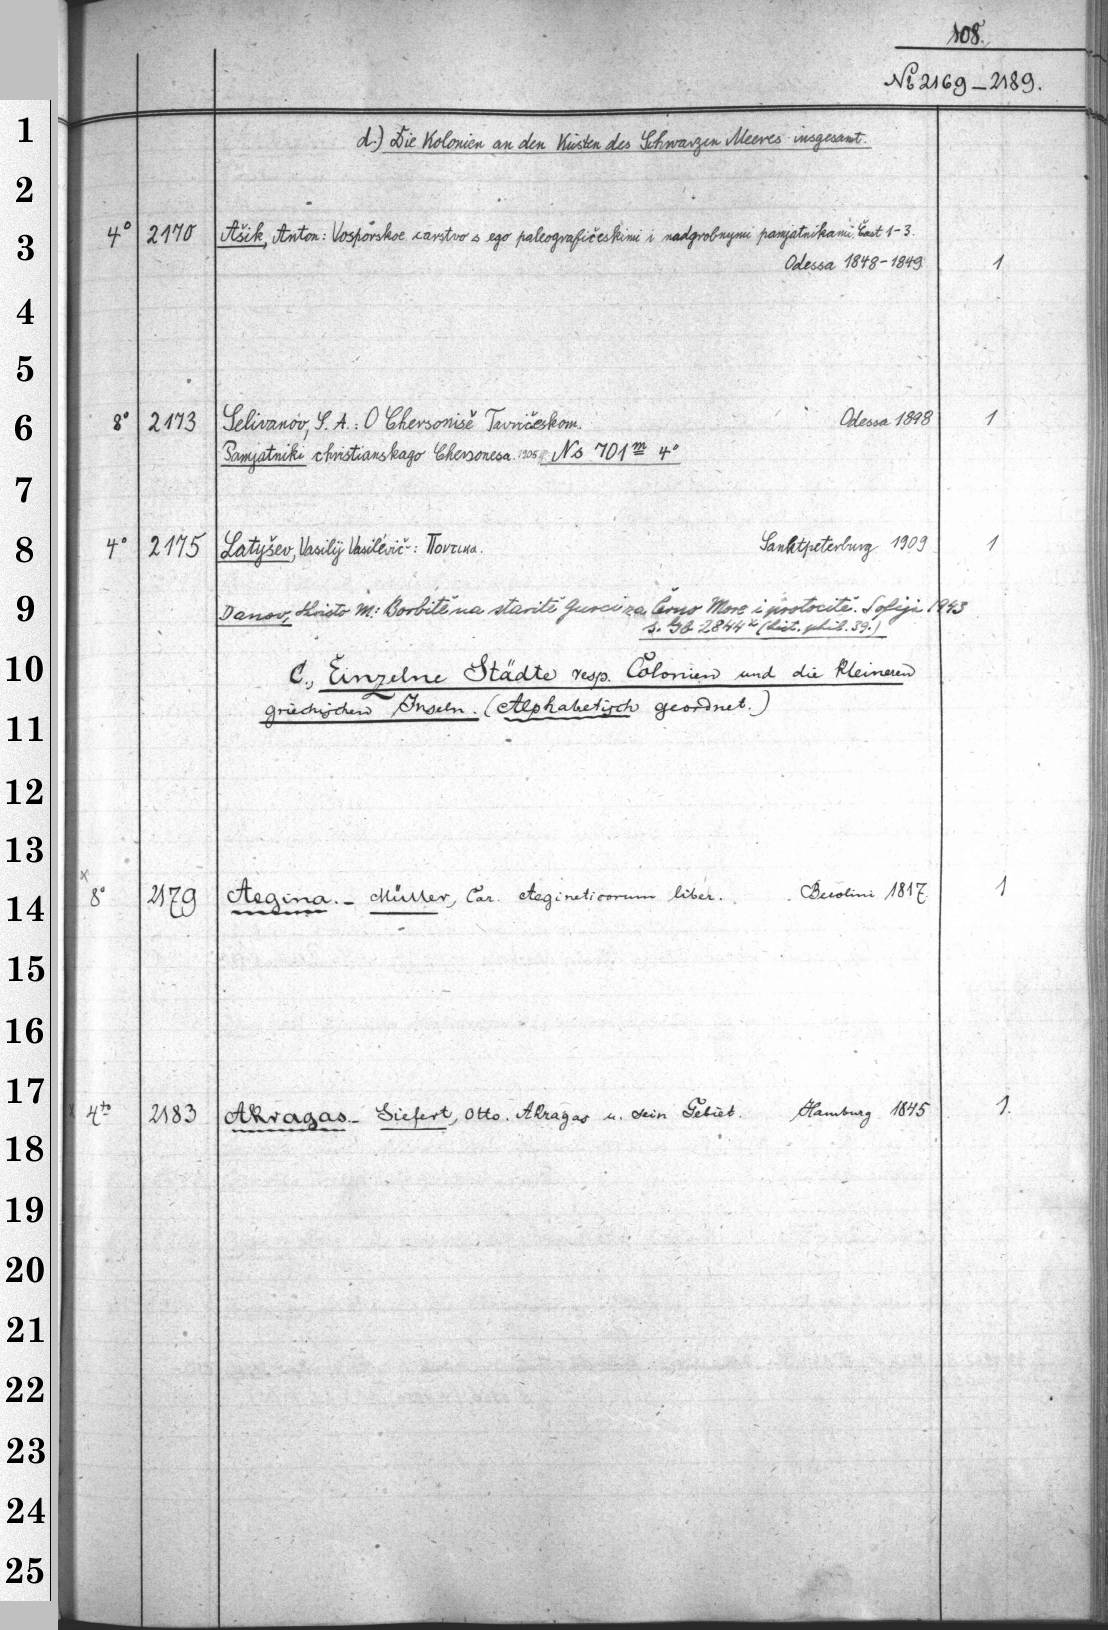 108.
No 2169–2189.
d.) Die Kolonien an den Küsten des Schwarzen Meeres insgesamt.
4° 2170 Ašik, Anton: Vosporskoe carstvo s ego paleografičeskimi i nadgrobnymi pamjatnikami. Čast 1-3.
Odessa 1848-1849 1
8° 2173 Selivanov, S. A.: O Chersonisě Tavričeskom. Odessa 1898 1
Pamjatniki christianskago Chersonesa. 1905 No 701m 4°
4° 2175 Latyšev, Vasilij Vasilévič: Ποντικα. Sanktpeterburg 1909 1
Danov, Hristo M: Borbitě na staritě Gurci za Černo More i protocitě. Sofija 1943
s. Gb 2844x (hist. phil. 39.)
C., Einzelne Städte resp. Colonien und die kleineren
griechischen Inseln. (Alphabetisch geordnet.)
x 8° 2179 Aegina. – Müller, Car. Aegineticorum liber. Berolini 1817 1
x 4to 2183 Akragas. – Siefert, Otto. Akragas u. sein Gebiet. Hamburg 1845 1.
1
2
3
4
5
6
7
8
9
10
11
12
13
14
15
16
17
18
19
20
21
22
23
24
25